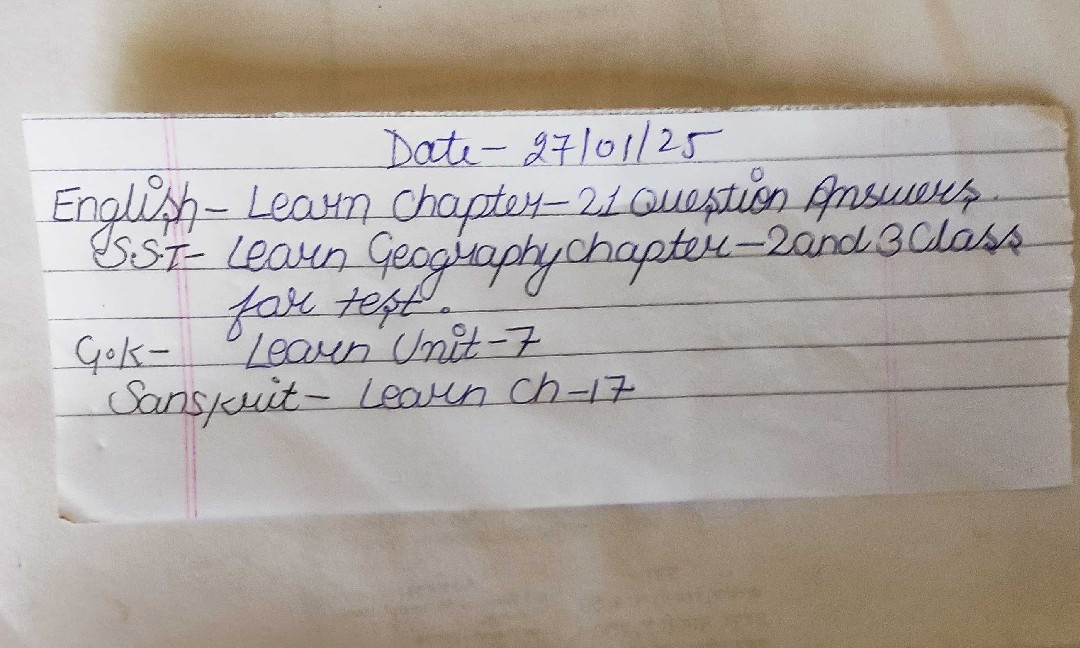 Date- 27/01/25
English- Learn Chapter-21 Question Answers.
S.S.T- Learn Geography chapter-2 and 3 Class
for test.
G.K- Learn Unit-7
Sanskrit- Learn Ch-17